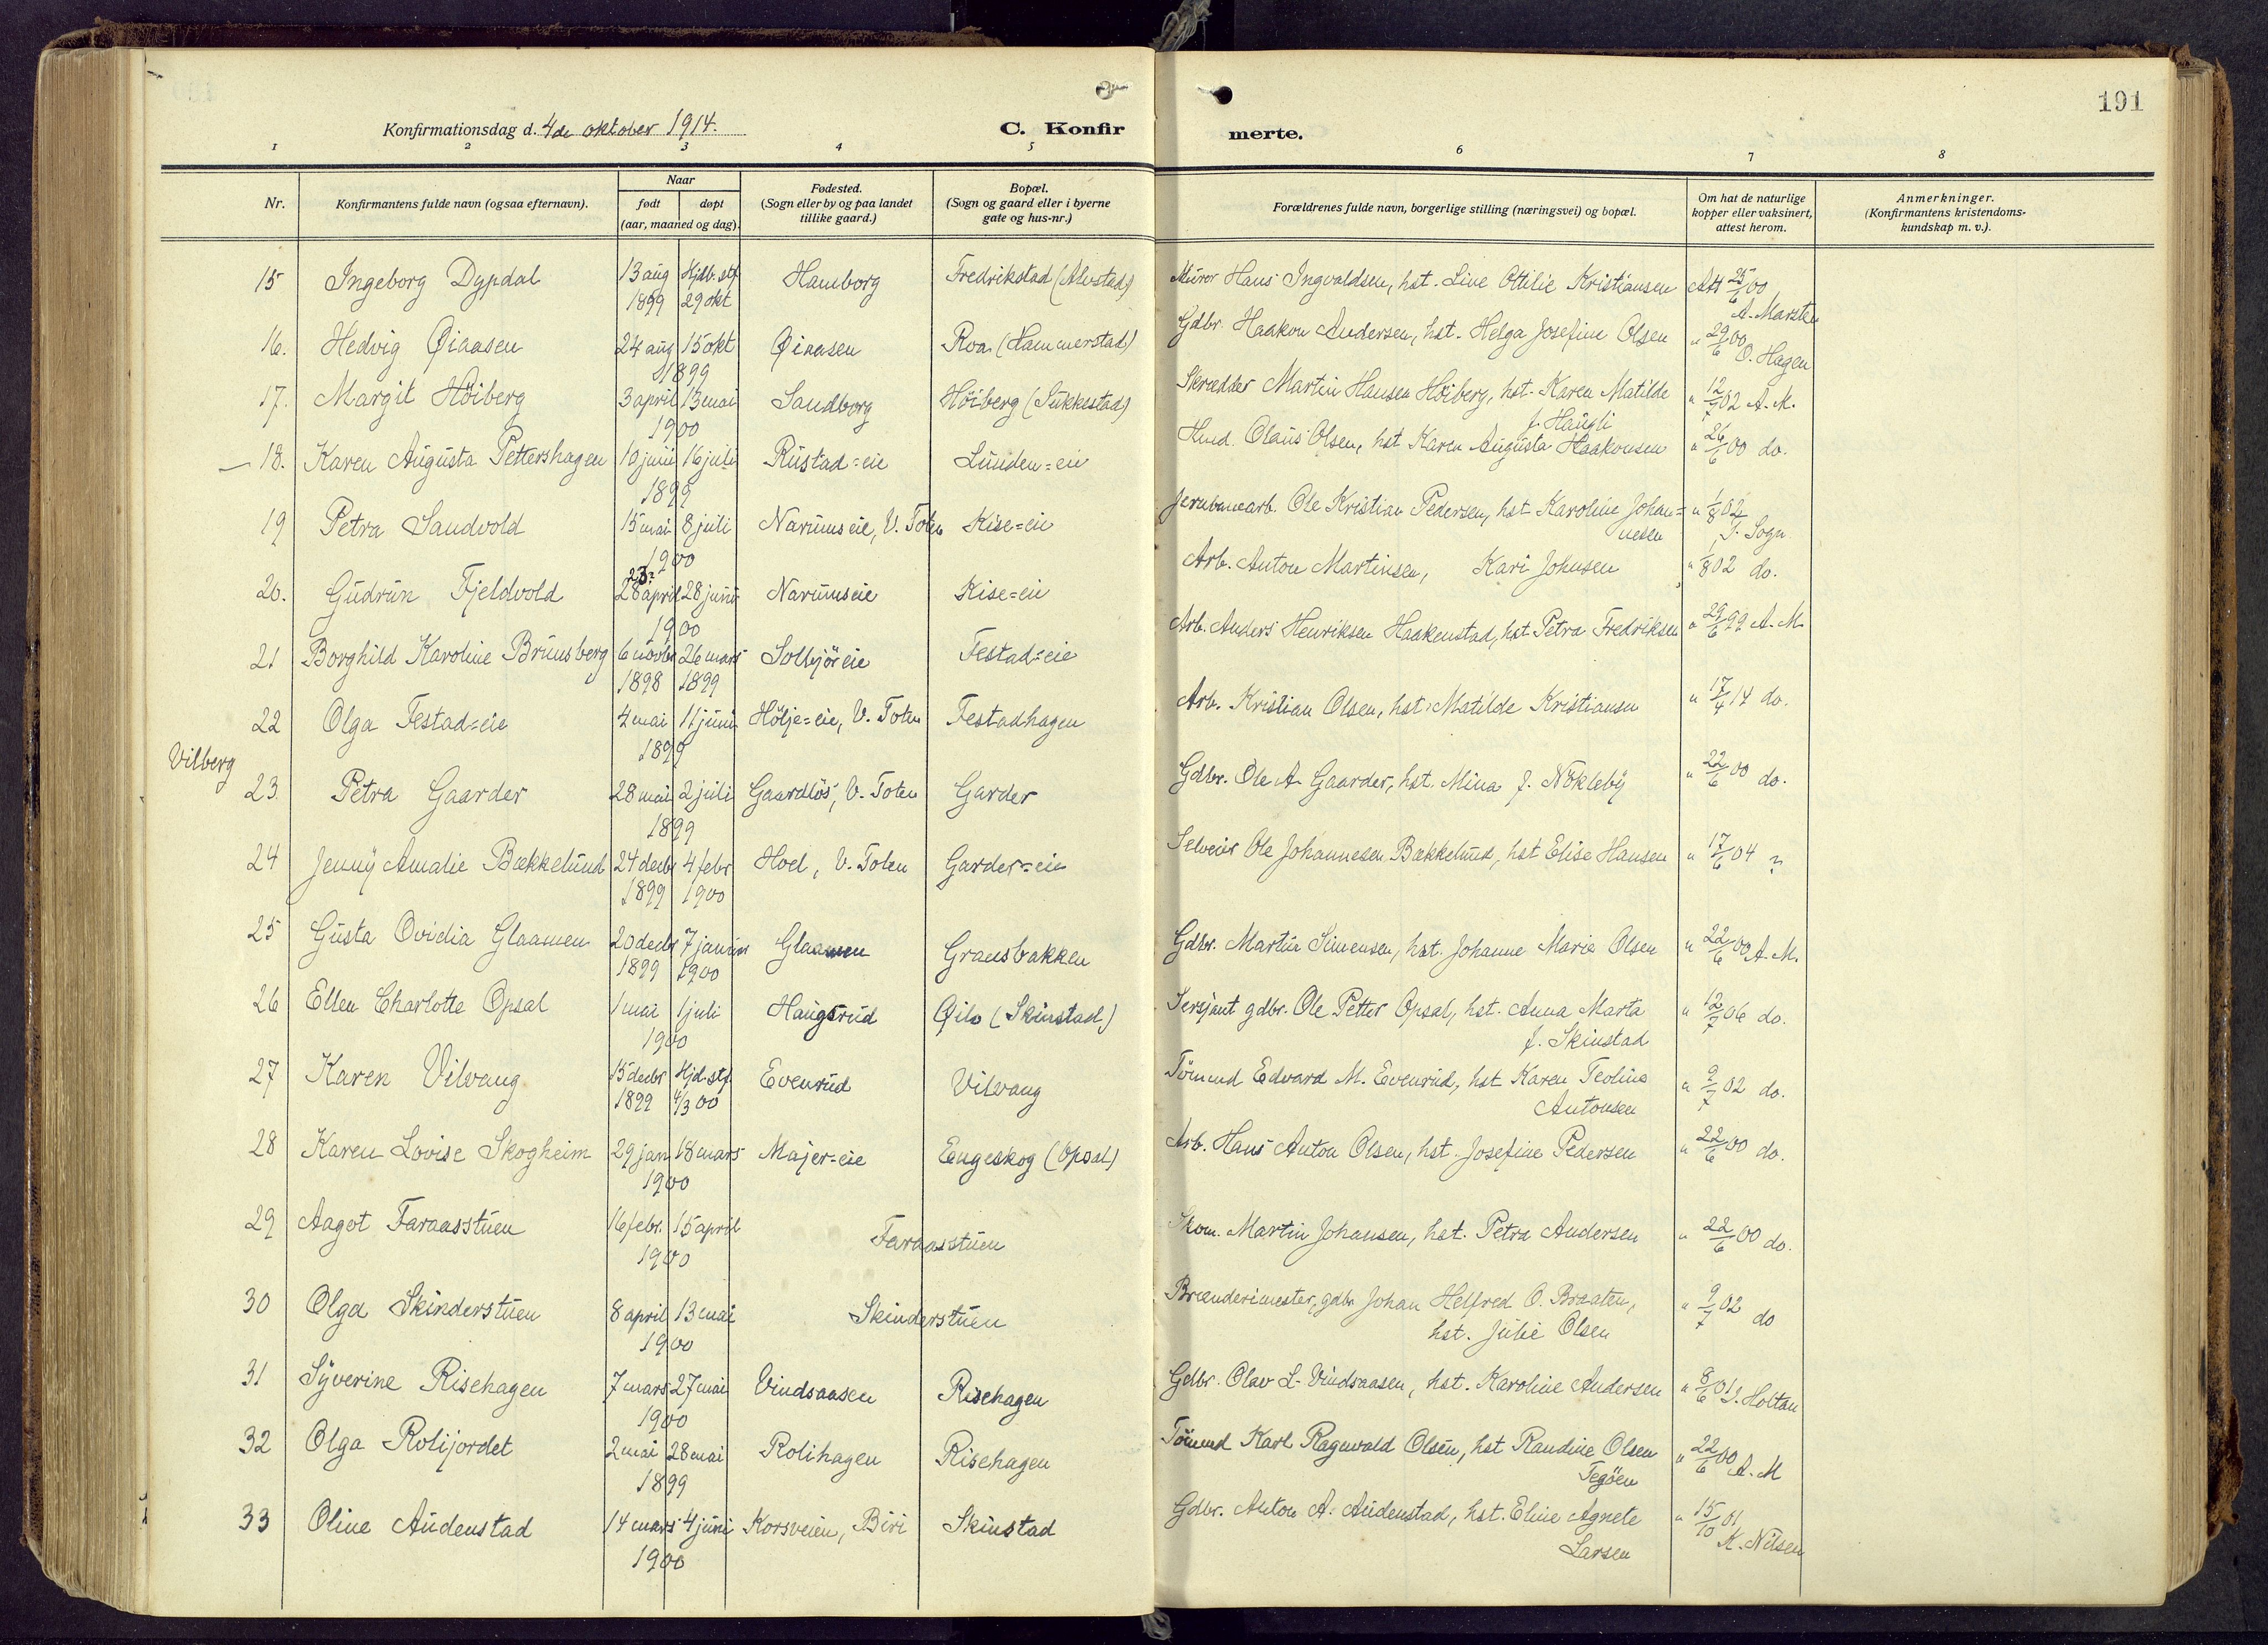 191
Konfirmationsdag d. 4de oktober 1914.
C. Konfirmerte.
1 2 3 4 5 6 7 8
Nr.
Konfirmantens fulde navn (ogsaa efternavn).
Naar
født døpt
(aar, maaned og dag).
Fødested.
(Sogn eller by og paa landet
tillike gaard.)
Bopæl.
(Sogn og gaard eller i byerne
gate og hus-nr.)
Forældrenes fulde navn, borgerlige stilling (næringsvei) og bopæl.
Om hat de naturlige
kopper eller vaksinert,
attest herom.
Anmerkninger.
(Konfirmantens kristendoms-
kundskap m. v.).
15 Ingeborg Dypdal 13 aug Hjdb. stf. Hamborg Fredrikstad (Alvstad) Murer Hans Ingvaldsen, hst. Line Ottilie Kristiansen Att 25/6 00
1899 29 okt A. Marsteen
16. Hedvig Øiaasen 24 aug 15 okt Øiaasen Roa (Hammerstad) Gdbr. Haakon Andersen, hst. Helga Josefine Olsen " 29/6 00
1899 O. Hagen
17. Margit Höiberg 3 april 13 mai Sandborg Höiberg (Sukkestad) Skrædder Martin Hansen Höiberg, hst. Karen Matilde " 12/7 02 A. M.
1900 f. Haugli
— 18. Karen Augusta Pettershagen 10 juni 16 juli Rustad=eie Lunden=eie Hmd. Olaus Olsen, hst Karen Augusta Haakonsen " 26/6 00 do.
1899
19 Petra Sandvold 15 mai 8 juli Narums eie, V. Toten Kise=eie Jernbanearb. Ole Kristian Pedersen, hst. Karoline Johan= " 1/8 02
1900 nesen S. Sogn
23?
20. Gudrun Fjeldvold 28 april 28 juni Narumseie Kise=eie Arb. Anton Martinsen, Kari Johnsen " 1/8 02 do.
1900
21 Borghild Karoline Brunsberg 6 novbr 26 mars Solbjör eie Festad=eie Arb. Anders Henriksen Haakenstad, hst Petra Fredriksen " 29/6 99 A. M.
1898 1899
22 Olga Festad=eie 4 mai 11 juni Hölje=eie, V. Toten Festadhagen Arb. Kristian Olsen, hst. Matilde Kristiansen " 17/4 14 do.
1899
Vilberg
23. Petra Gaarder 28 mai 2 juli Gaardlös, V. Toten Garder Gdbr. Ole A. Gaarder, hst. Mina f. Nökleby " 22/6 00 do.
1899
24 Jenny Amalie Bækkelund 24 decbr 4 febr Hoel, V. Toten Garder=eie Selveier Ole Johannesen Bækkelund, hst Elise Hansen " 17/6 04 ?
1899 1900
25 Gusta Ovidia Glaamen 20 decbr 7 januar Glaamen Gransbakken Gdbr. Martin Simensen, hst. Johanne Marie Olsen " 22/6 00 A. M.
1899 1900
26 Ellen Charlotte Opsal 1 mai 1 juli Haugsrud Øilo (Skinstad) Sersjant gdbr. Ole Petter Opsal, hst. Anna Marta " 12/7 06 do.
1900 f. Skinstad
27 Karen Vilvang 15 decbr Hjd. stf. Evenrud Vilvang Tömmd Edvard M. Evenrud, hst Karen Teoline " 9/7 02 do.
1899 4/3 00 Antonsen
28 Karen Lovise Skogheim 29 jan 18 mars Majer=eie Engeskog (Opsal) Arb. Hans Anton Olsen, hst. Josefine Pedersen " 22/6 00 do.
1900
29 Aagot Faraasstuen 16 febr. 15 april Faraasstuen Skom. Martin Johansen, hst. Petra Andersen " 22/6 00 do.
1900
30 Olga Skinderstuen 8 april 13 mai Skinderstuen Brænderimester, gdbr Johan Helfred O. Braaten, " 9/7 02 do
1900 hst. Julie Olsen
31 Syverine Risehagen 7 mars 27 mai Vindsaasen Risehagen Gdbr. Olav L. Vindsaasen, hst. Karoline Andersen " 8/6 01 J. Holtan
1900
32 Olga Rolijordet 2 mai 28 mai Rolihagen Risehagen Tömmd Karl Ragnvald Olsen, hst Randine Olsen " 22/6 00 A. M
1899 Tegöen
33 Oline Audenstad 14 mars 4 juni Korsveien, Biri Skinstad Gdbr. Anton A. Audenstad, hst. Eline Agnete " 15/10 01
1900 Larsen K. Nilsen